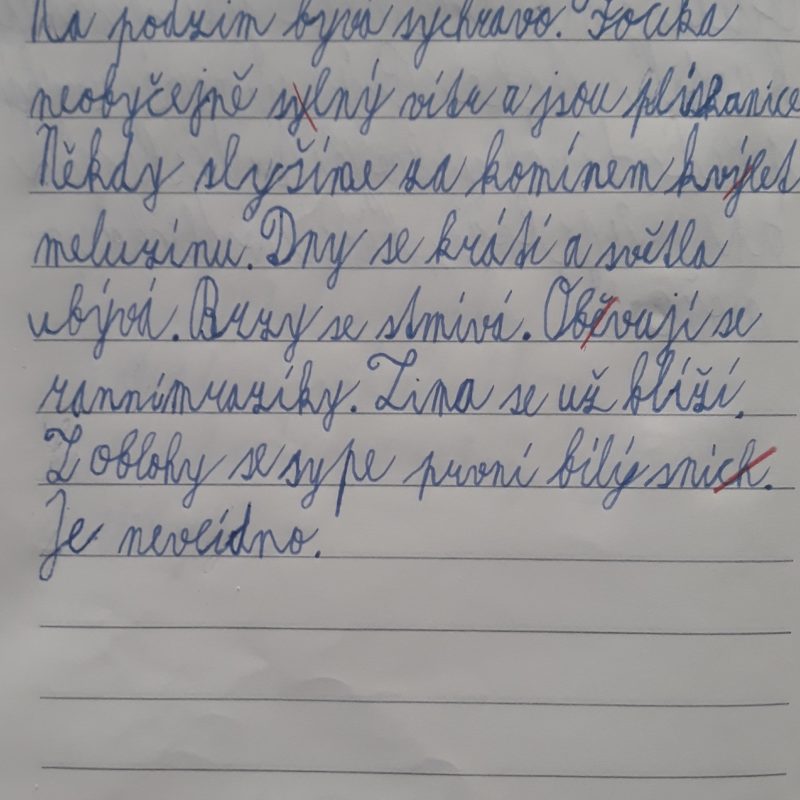 Na podzim bývá sychravo. Fouká
neobyčejně sylný vítr a jsou plískanice
Někdy slyšíme za komínem kvýlet
meluzínu. Dny se krátí a světla
ubývá. Brzy se stmívá. Oběvují se
ranní mrazíky. Zima se už blíží.
Z oblohy se sype první bílý sních.
Je nevlídno.